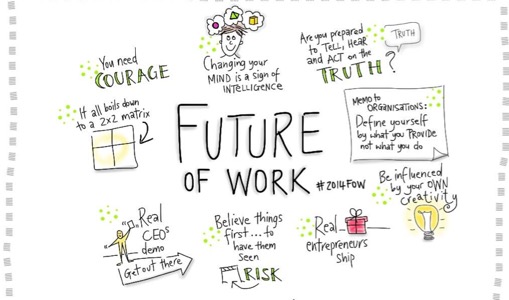 You need
COURAGE
Changing your
MIND is a sign of
INTELLIGENCE
Are you prepared
to TELL, HEAR
and ACT on the
TRUTH?
TRUTH
It all boils down
to a 2x2 matrix
FUTURE
OF WORK
#2014FOW
MEMO to
ORGANISATIONS:
Define yourself
by what you PROVIDE
not what you do
Be influenced
by your OWN
creativity
Real
CEOs
demo
Get out there
Believe things
first...to
have them
seen
RISK
Real
entrepreneurs
ship